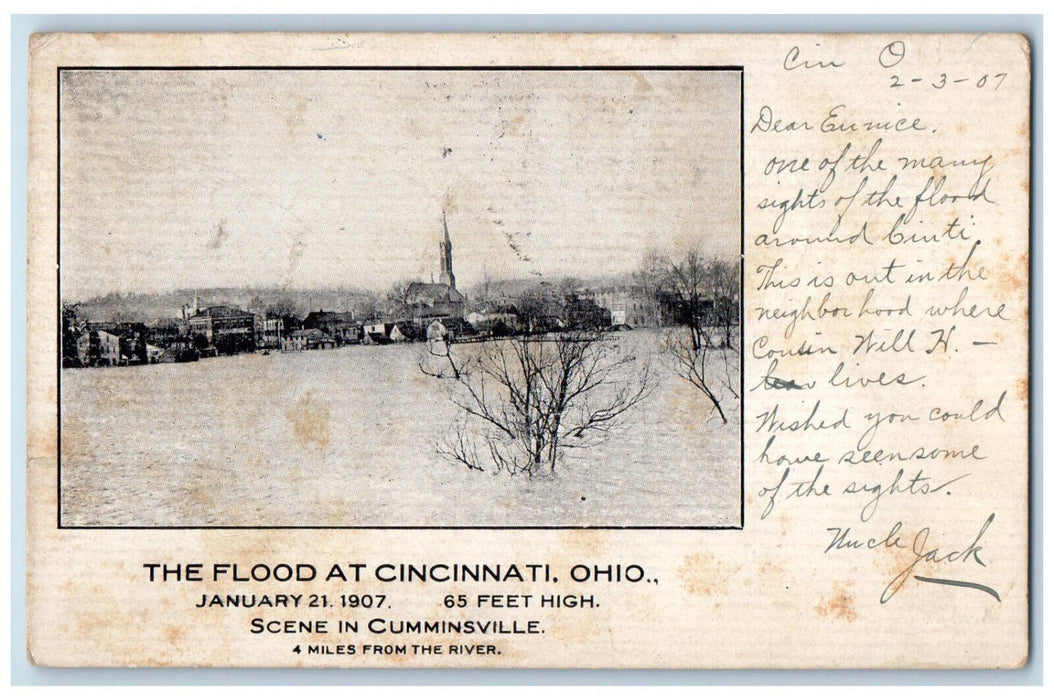 Cin O
2-3-07
Dear Eunice.
one of the many
sights of the flood
around Cinti.
This is out in the
neighborhood where
Cousin Will H. –
lives.
Wished you could
have seen some
of the sights.
Uncle Jack
THE FLOOD AT CINCINNATI, OHIO.,
JANUARY 21. 1907. 65 FEET HIGH.
SCENE IN CUMMINSVILLE.
4 MILES FROM THE RIVER.